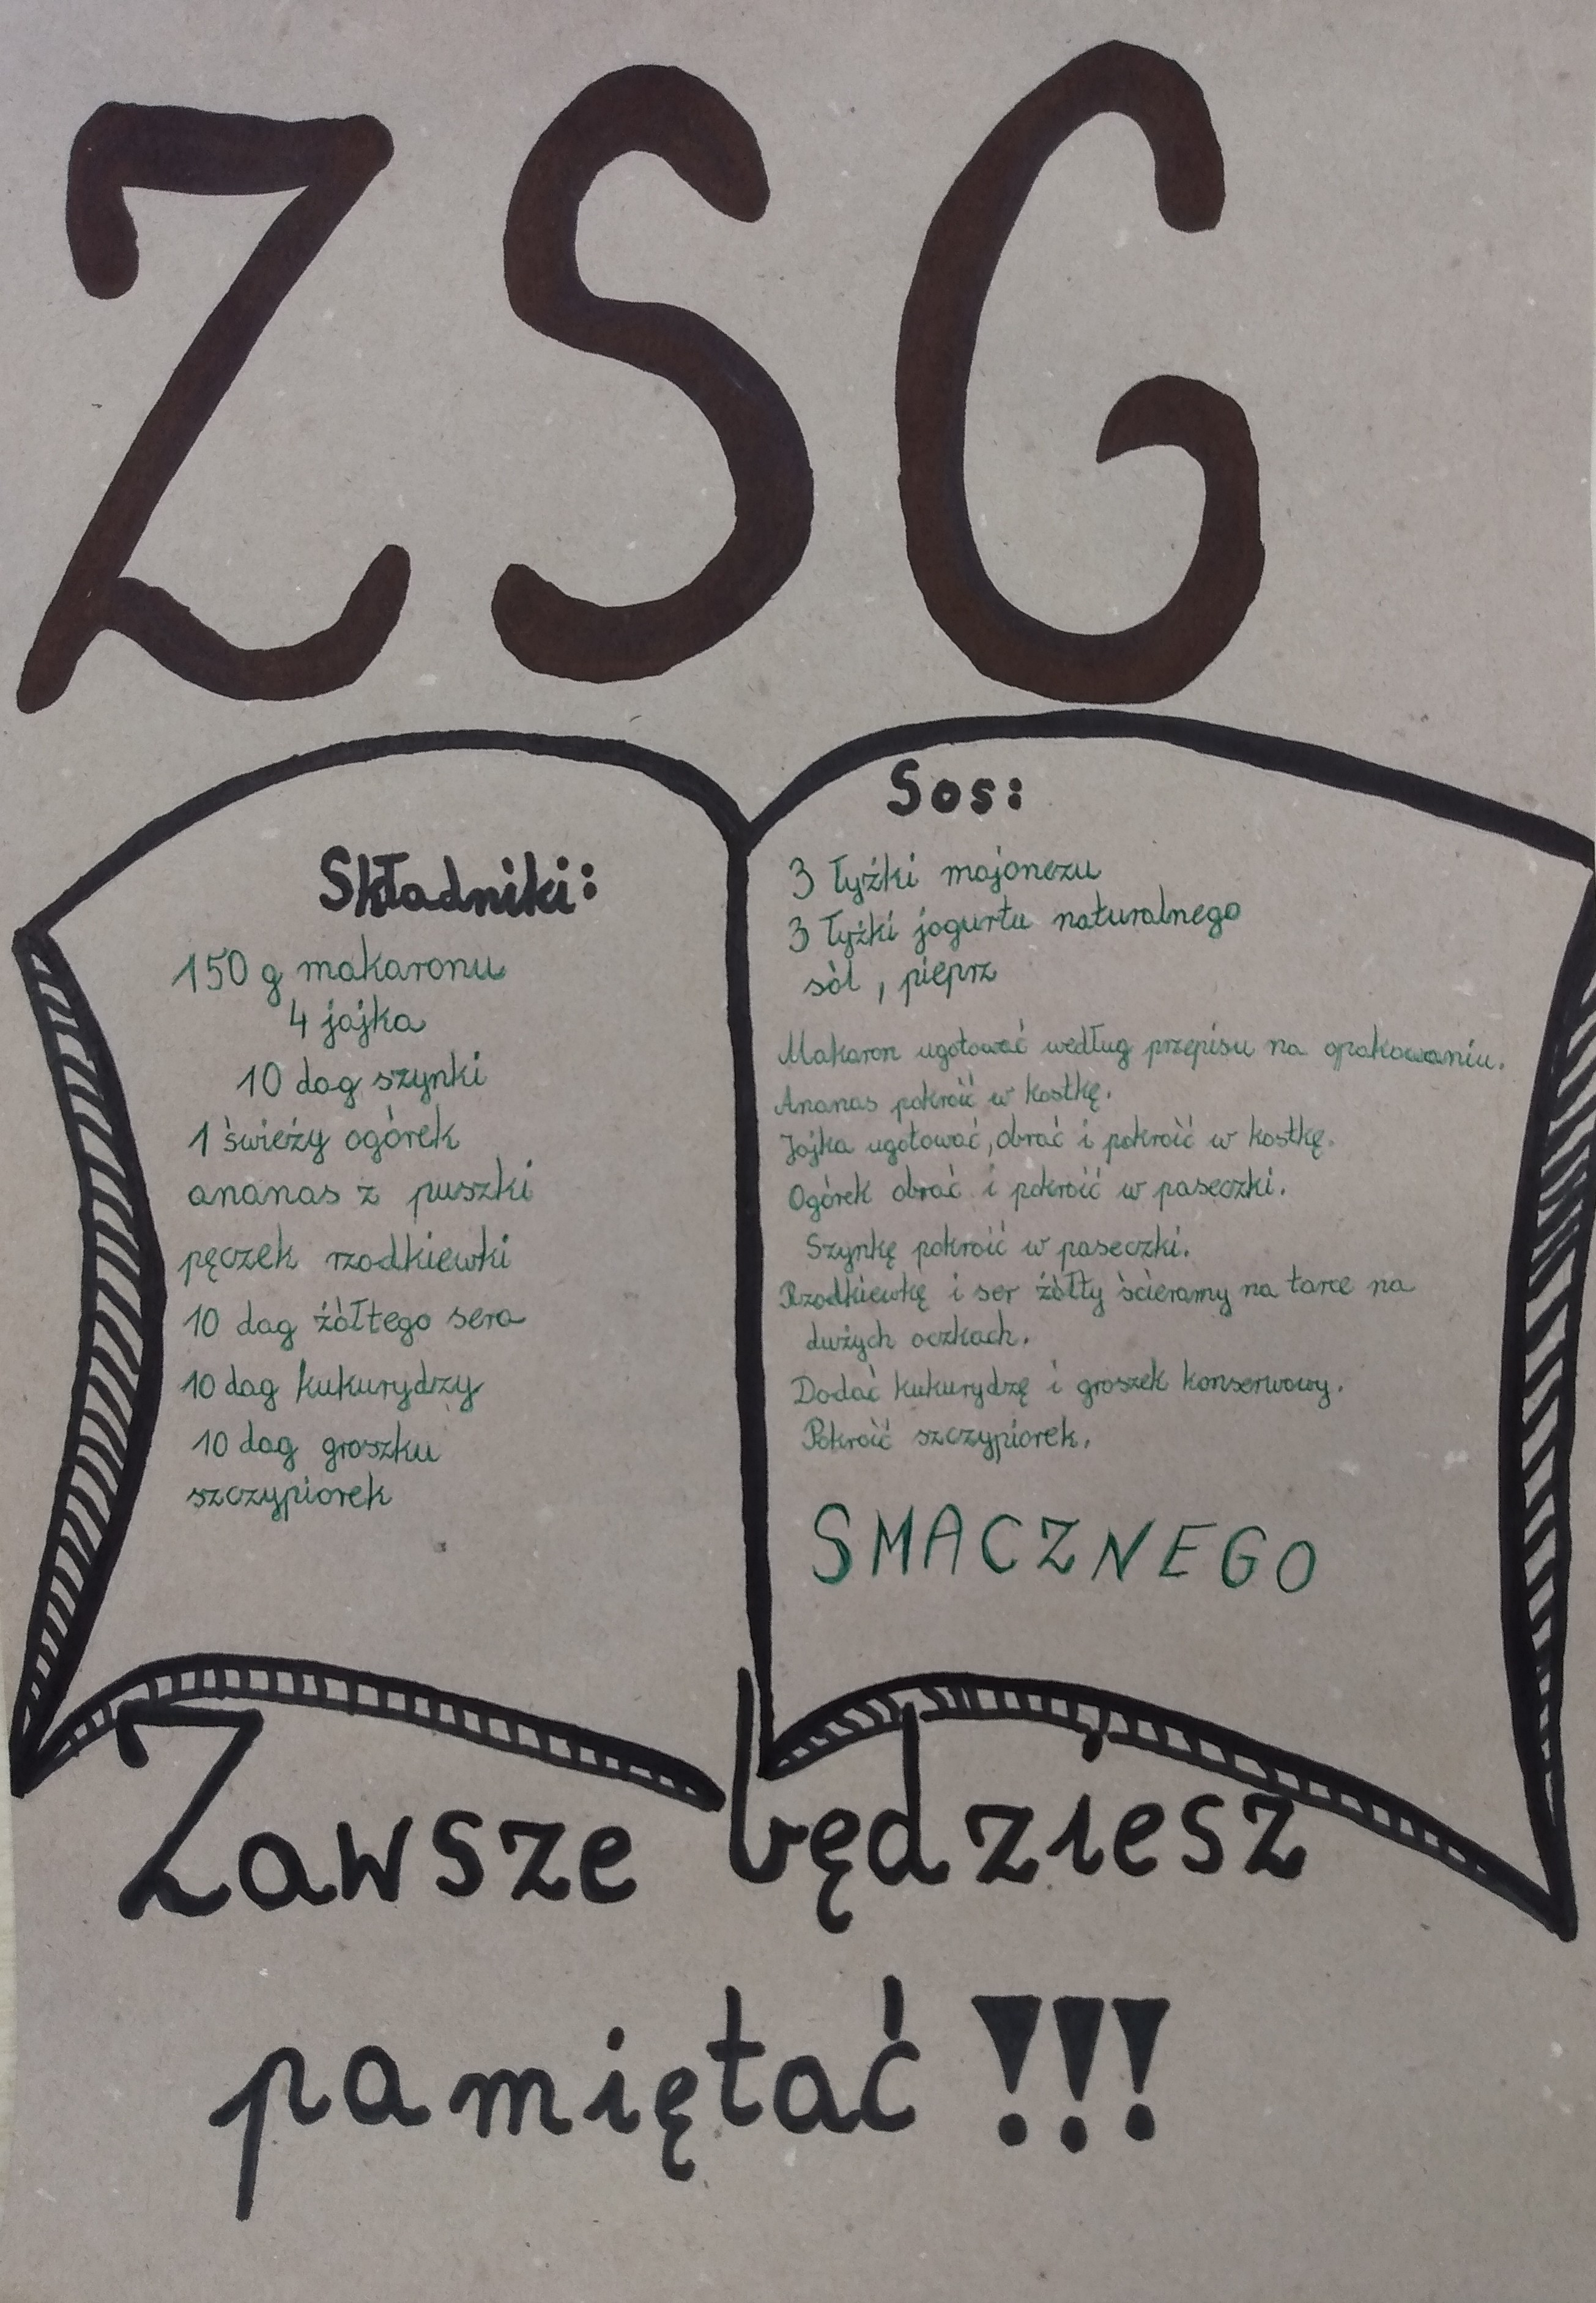 ZSG
Składniki:
150 g makaronu
4 jajka
10 dag szynki
1 świeży ogórek
ananas z puszki
pęczek rzodkiewki
10 dag żółtego sera
10 dag kukurydzy
10 dag groszku
szczypiorek
Sos:
3 łyżki majonezu
3 łyżki jogurtu naturalnego
sól, pieprz
Makaron ugotować według przepisu na opakowaniu.
Ananas pokroić w kostkę.
Jajka ugotować, obrać i pokroić w kostkę.
Ogórek obrać i pokroić w paseczki.
Szynkę pokroić w paseczki.
Rzodkiewkę i ser żółty ścieramy na tarce na
dużych oczkach.
Dodać kukurydzę i groszek konserwowy.
Pokroić szczypiorek.
SMACZNEGO
Zawsze będziesz
pamiętać !!!